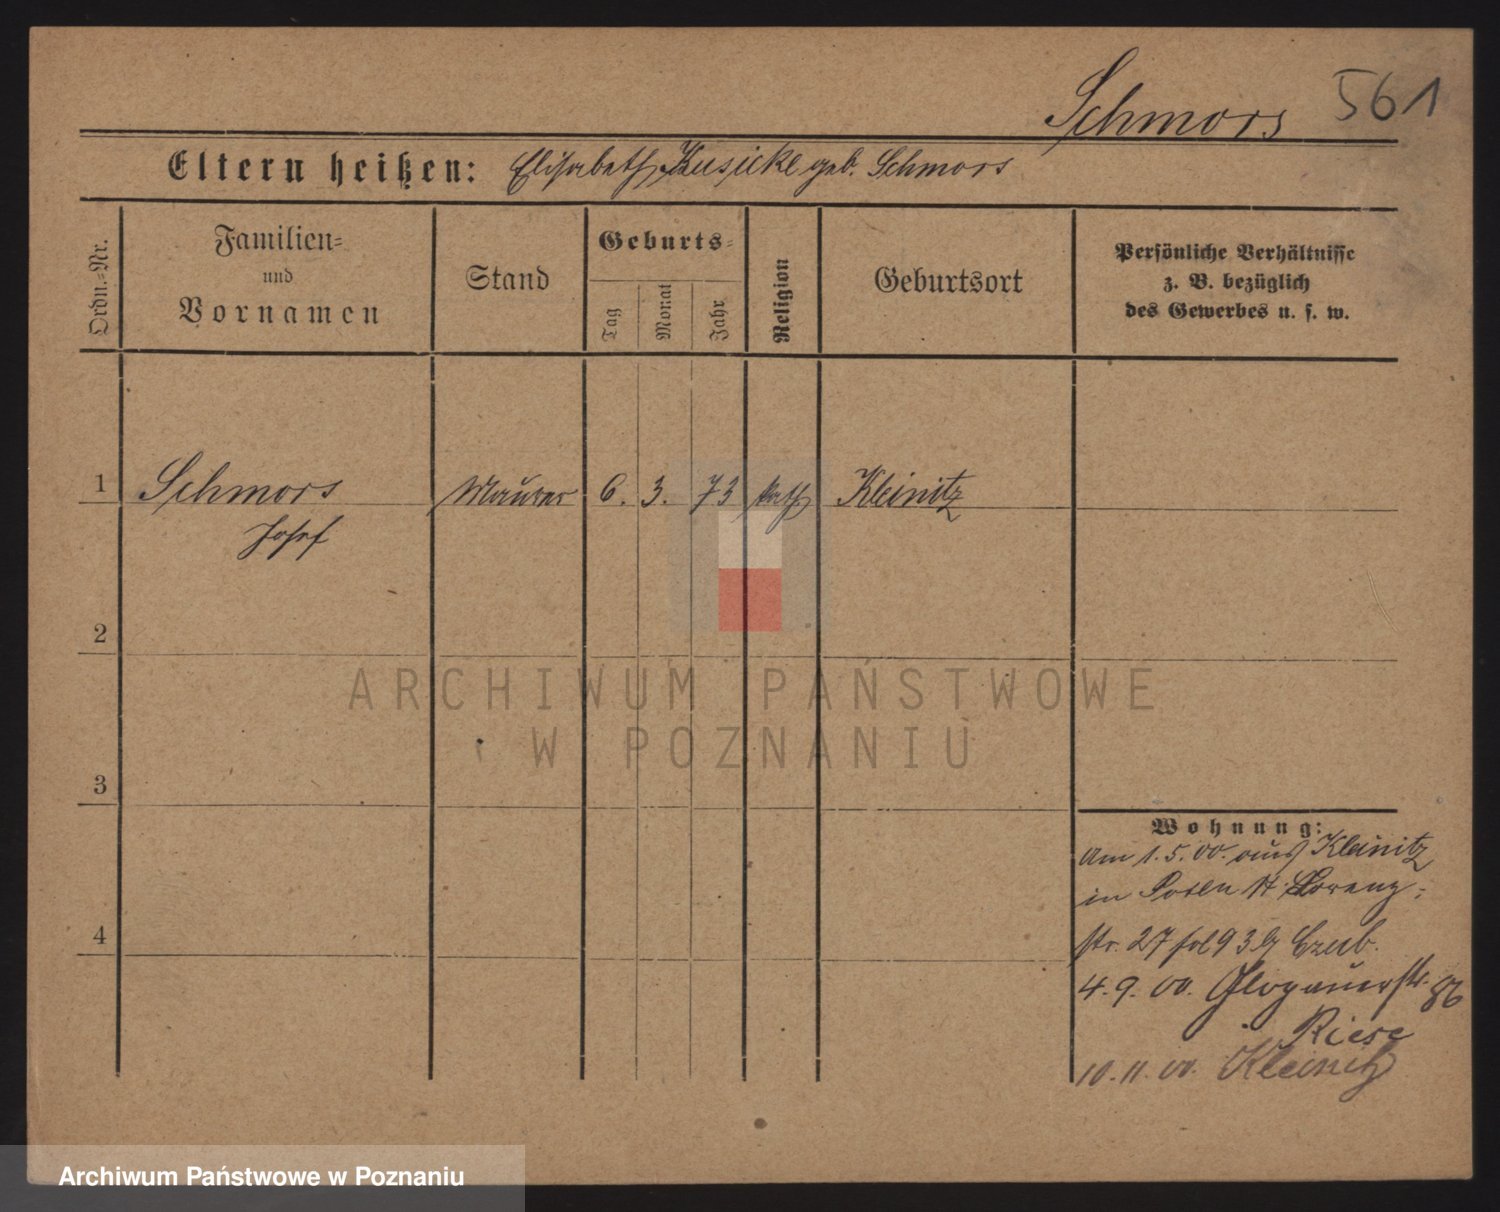 561
Schmors
Eltern heißen: Elisabeth Kusicke geb. Schmors
Ordn.-Nr.
Familien-
und
Vornamen
Stand
Geburts-
Tag
Monat
Jahr
Religion
Geburtsort
Persönliche Verhältnisse
z. B. bezüglich
des Gewerbes u. s. w.
1 Schmors Maurer 6. 3. 73 kath. Kleinitz
Josef
2
3
4
Wohnung:
Am 1.5.00. aus Kleinitz
in Posen St. Lorenz-
str. 27
4.9.00. Glogauerstr. 86
Riese
10.11.00. Kleinitz
ARCHIWUM PAŃSTWOWE
W POZNANIU
Archiwum Państwowe w Poznaniu